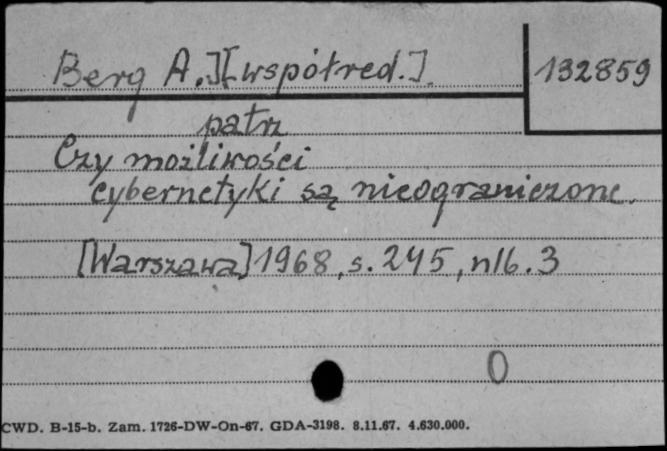 Berg A.][współred.]
132859
patrz
Czy możliwości
cybernetyki są nieograniczone.
[Warszawa] 1968, s. 245, nlb. 3
0
CWD. B-15-b. Zam. 1726-DW-On-67. GDA-3198. 8.11.67. 4.630.000.